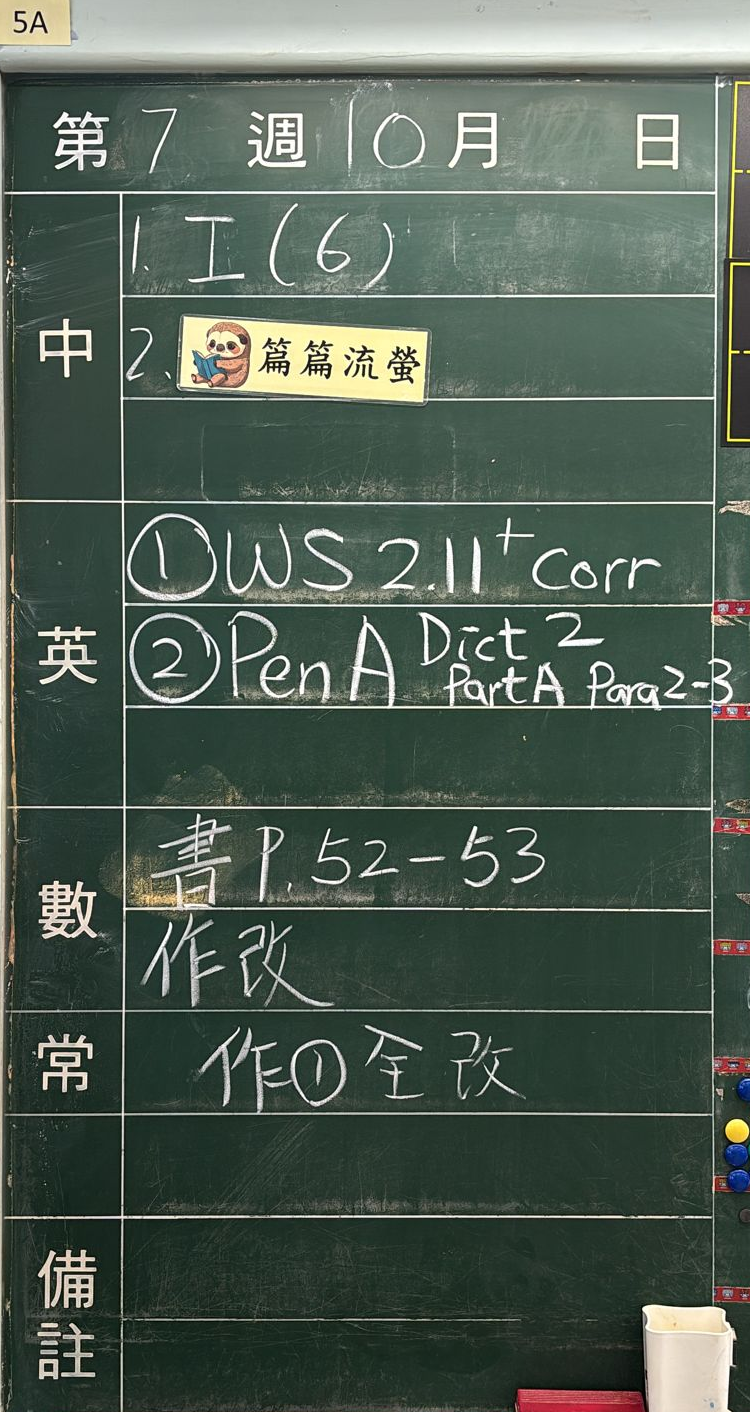 5A
第7週10月 日
中
1. 工(6)
2. 篇篇流螢
英
①WS 2.11+corr
②PenA Dict 2 PartA Para2-3
數
書 P.52-53
作改
常
作①全改
備註